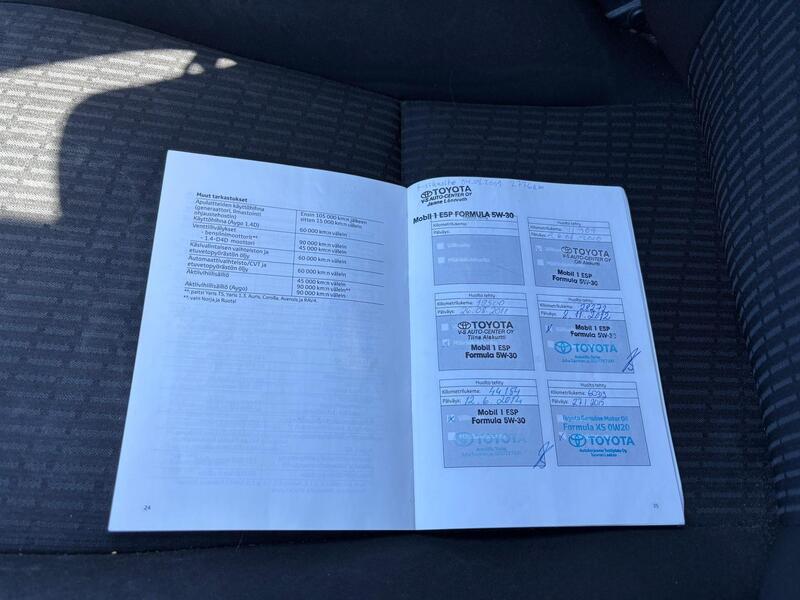 Muut tarkastukset
Apulaitteiden käyttöhihna
(generaattori, ilmastointi
ohjaustehostin)
Ensin 105 000 km:n jälkeen
sitten 15 000 km:n välein
Käyttöhihna (Aygo 1.4D)
Venttiilivälykset
- bensiinimoottorit**
60 000 km:n välein
- 1.4-D4D moottori
90 000 km:n välein
Käsivalintaisen vaihteiston ja
etuvetopyörästön öljy
45 000 km:n välein
Automaattivaihteisto/CVT ja
etuvetopyörästön öljy
60 000 km:n välein
60 000 km:n välein
Aktiivihiilisäiliö
45 000 km:n välein
Aktiivihiilisäiliö (Aygo)
90 000 km:n välein**
90 000 km:n välein
24
TOYOTA
V-S AUTO-CENTER OY
Janne Lönnroth
Mobil 1 ESP FORMULA 5W-30
Kilometrilukema:
Päiväys:
TOYOTA
V-S AUTO-CENTER OY
Mobil 1 ESP
Formula 5W-30
Huolto tehty
Kilometrilukema:
Päiväys: 26.08.2011
TOYOTA
V-S AUTO-CENTER OY
Tiina Alakurtti
Mobil 1 ESP
Formula 5W-30
Huolto tehty
Kilometrilukema: 28273
Päiväys: 2.11.2012
Mobil 1 ESP
Formula 5W-30
TOYOTA
Huolto tehty
Kilometrilukema: 44154
Päiväys: 12.6.2014
Mobil 1 ESP
Formula 5W-30
TOYOTA
Huolto tehty
Kilometrilukema:
Päiväys: 27.1.2015
Toyota Genuine Motor Oil
Formula XS 0W20
TOYOTA
25